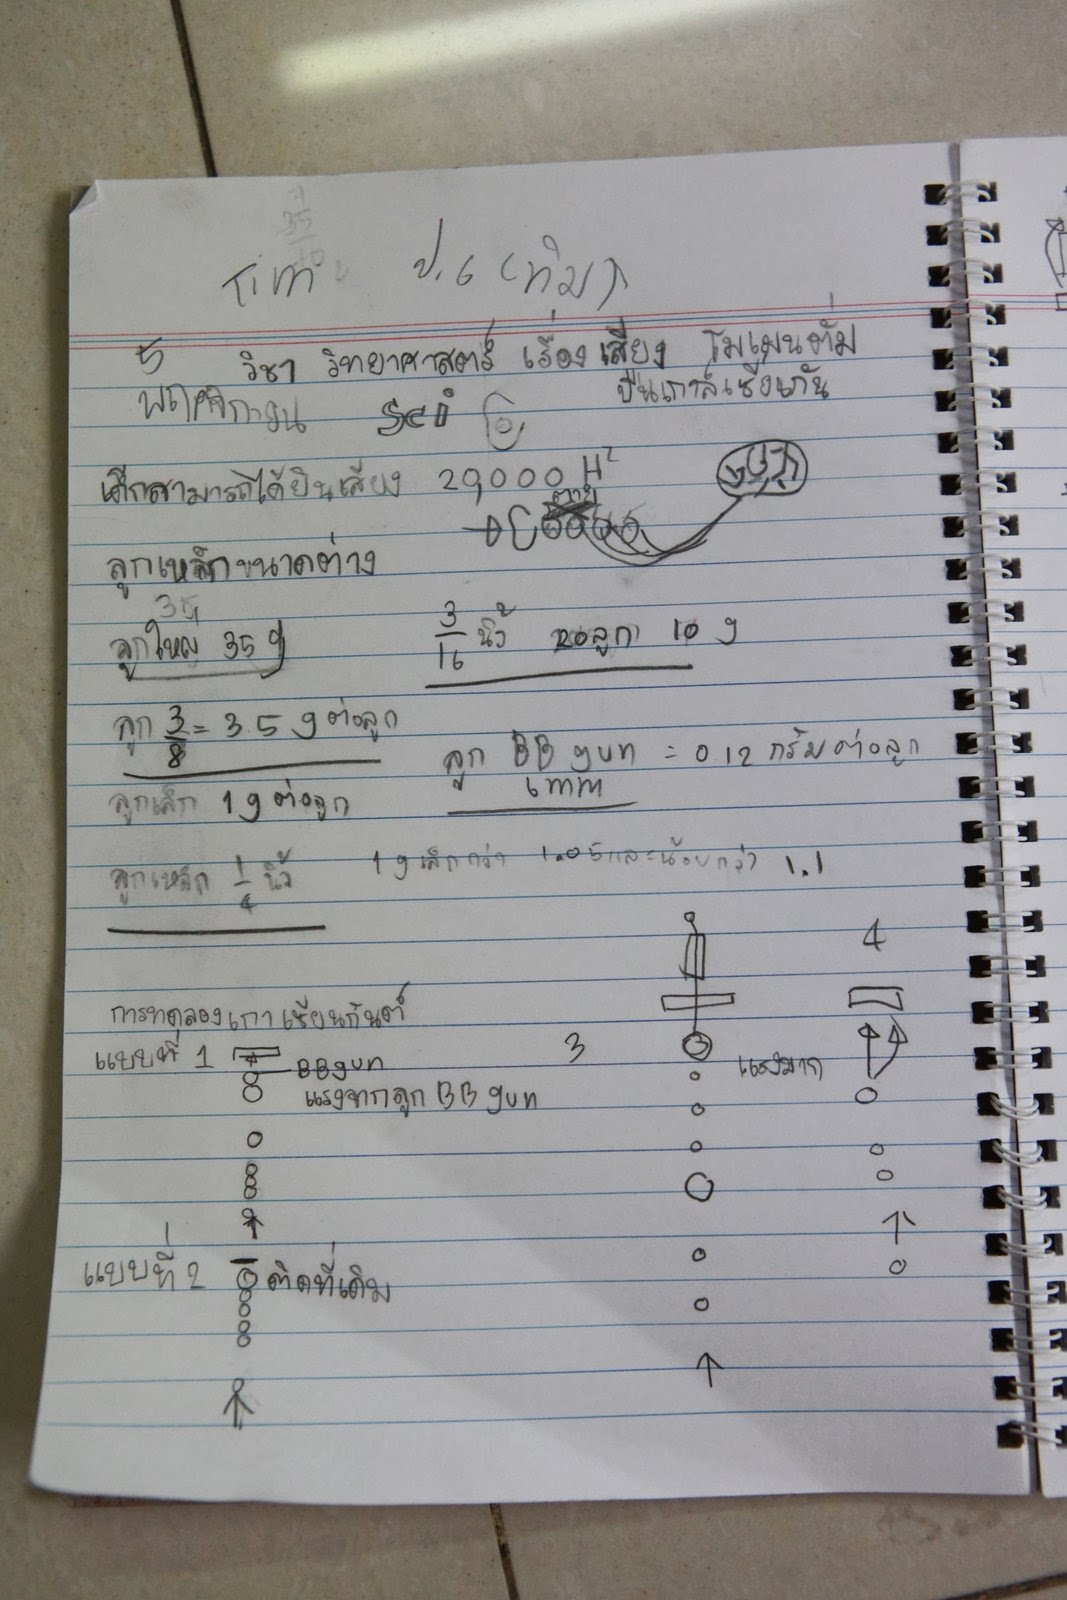 Tim ป.6 (ทิม)
5 วิชา วิทยาศาสตร์ เรื่อง เสียง โมเมนตั่ม
พฤศจิกายน Sci ปืนเกาส์เซียนกัน
เด็กสามารถได้ยินเสียง 20,000 H
ลูกเหล็กขนาดต่าง
35
ลูกใหญ่ 35 g
3/16 นิ้ว 20ลูก 10 g
ลูก 3/8 = 3.5 g ต่อลูก
ลูก BB gun = 0.12 กรัมต่อลูก
6mm
ลูกเล็ก 1 g ต่อลูก
ลูกเหล็ก 1/4 นิ้ว 1 g เล็กกว่า 1.05 และน้อยกว่า 1.1
การทดลองเกาเซียนกันต์
แบบที่ 1 BBgun 3 แรงมาก 4
แรงจากลูก BB gun
แบบที่ 2 ติดที่เดิม